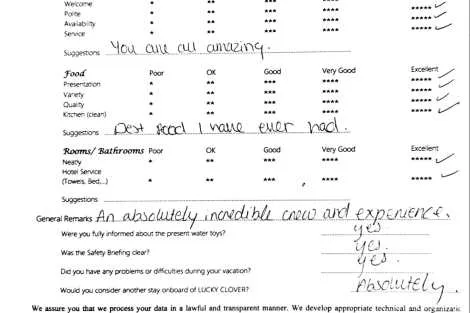 Welcome * ** *** **** ***** ✓
Polite * ** *** **** ***** ✓
Availability * ** *** **** ***** ✓
Service * ** *** **** ***** ✓
Suggestions You are all amazing.
Food Poor OK Good Very Good Excellent
Presentation * ** *** **** ***** ✓
Variety * ** *** **** ***** ✓
Quality * ** *** **** ***** ✓
Kitchen (clean) * ** *** **** ***** ✓
Suggestions Best food I have ever had.
Rooms/ Bathrooms Poor OK Good Very Good Excellent
Neatly * ** *** **** ***** ✓
Hotel Service
(Towels, Bed,...) * ** *** **** ***** ✓
Suggestions
General Remarks An absolutely incredible crew and experience.
Were you fully informed about the present water toys? yes
Was the Safety Briefing clear? yes.
Did you have any problems or difficulties during your vacation? yes.
Would you consider another stay onboard of LUCKY CLOVER? Absolutely.
We assure you that we process your data in a lawful and transparent manner. We develop appropriate technical and organizatic